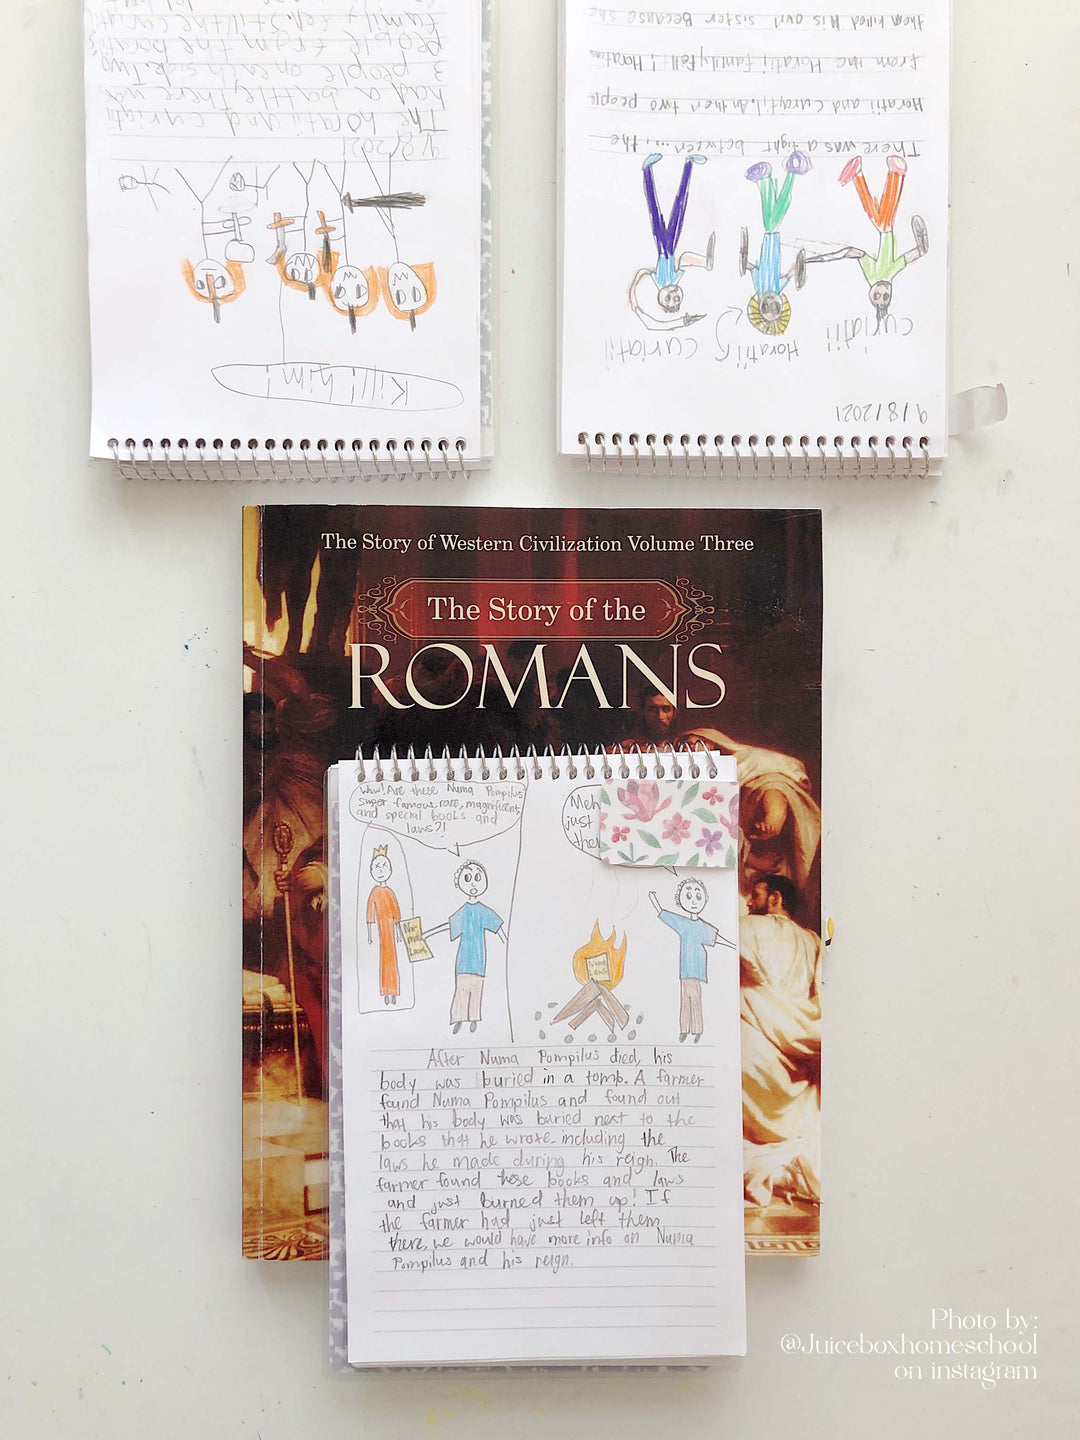 Kill him!
9/8/2021
The horatii and curiatii
had a battle, There was
3 people on each side. Two
people from the horatii
family fell. Still the curiatii
9/8/2021
curiatii Horatii Curiatii
There was a fight between .... the
Horatii and Curiatii. And then two people
from the Horatii family fell! Horatius
then killed His own sister Because she
The Story of Western Civilization Volume Three
The Story of the
ROMANS
Wow! Are these Numa Pompilus
super famous, rare, magnificent,
and special books and
laws?!
Meh
just
Numa
Laws
Numa
Laws
After Numa Pompilus died, his
body was buried in a tomb. A farmer
found Numa Pompilus and found out
that his body was buried next to the
books that he wrote including the
laws he made during his reign. The
farmer found these books and laws
and just burned them up! If
the farmer had just left them
there, we would have more info on Numa
Pompilus and his reign.
Photo by:
@Juiceboxhomeschool
on instagram